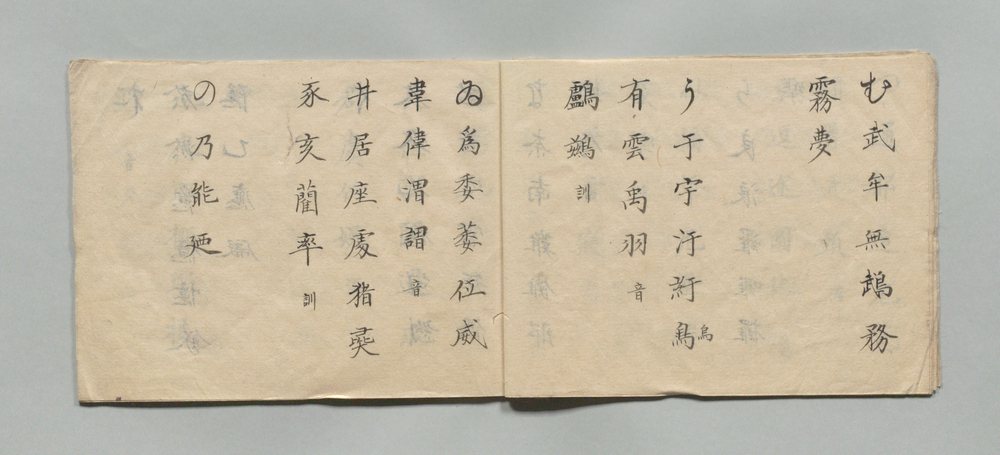 む武牟無鵡務
霧夢
う于宇汙紆鳥烏
有雲禹羽音
鸕鷀訓
ゐ為委萎位威
韋偉渭謂音
井居座處猪
豕亥藺率訓
の乃能廼